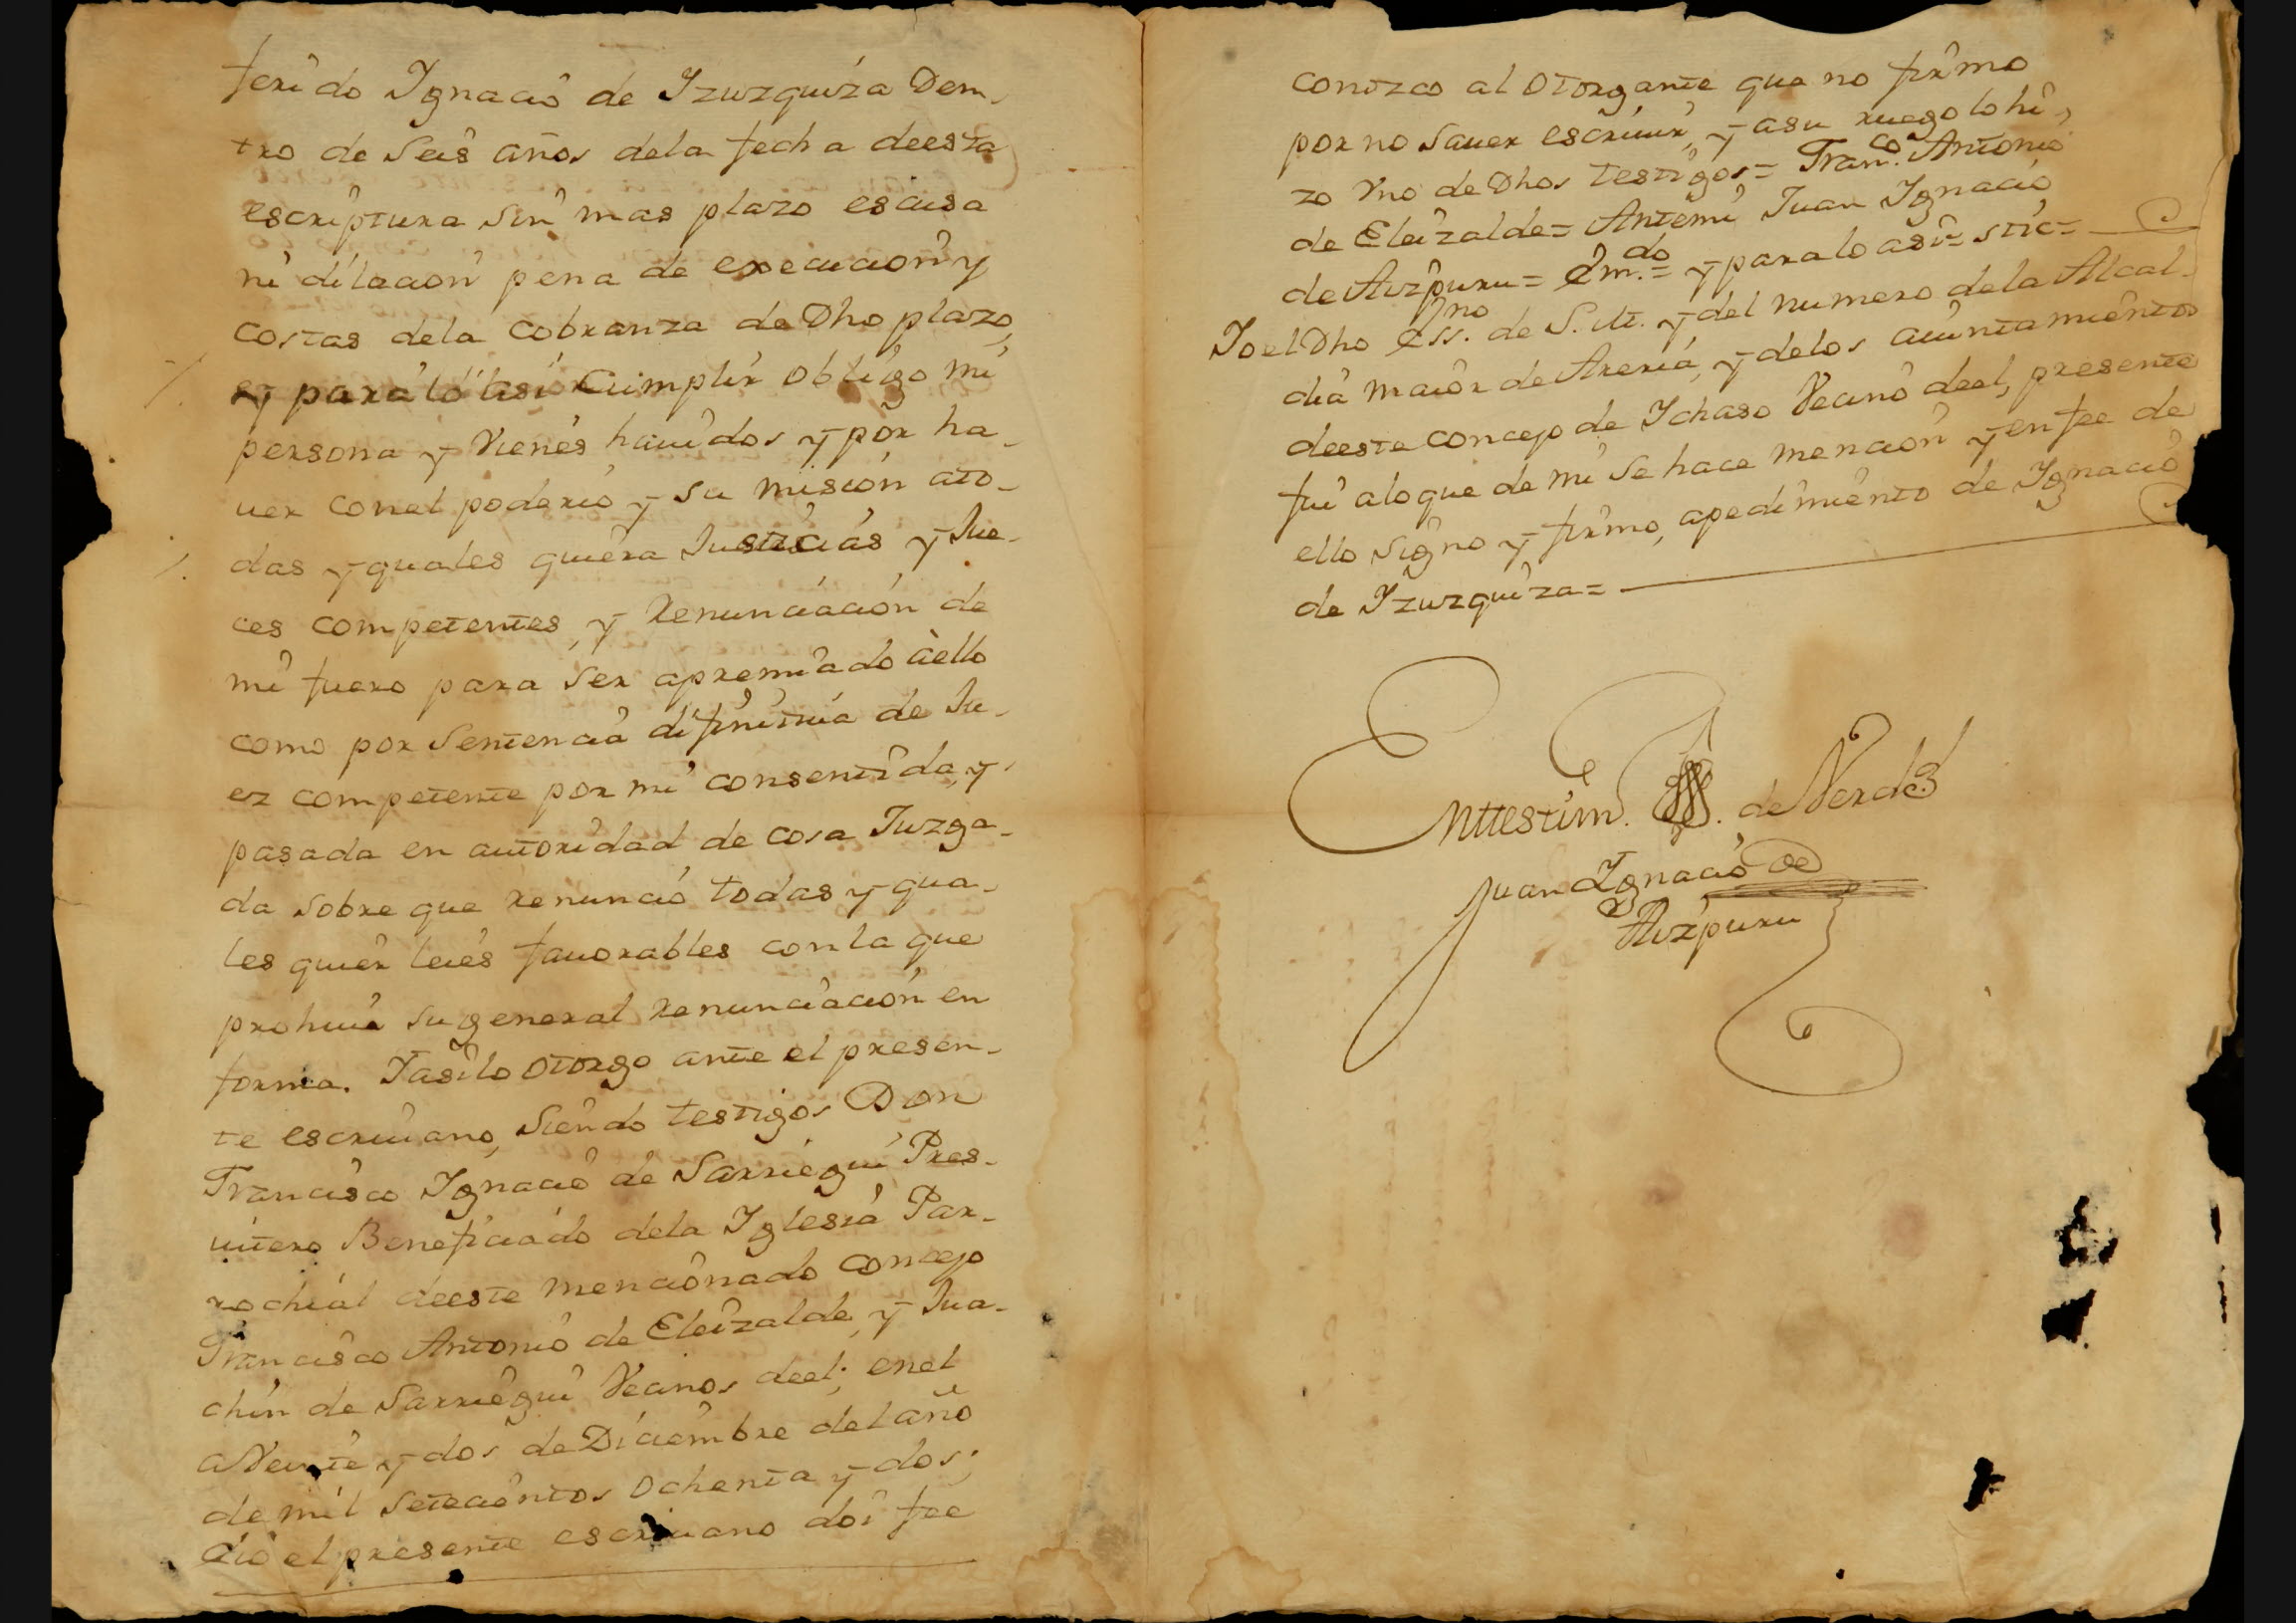 ferido Ygnacio de Yzuzquiza Den-
tro de Seis años dela fecha deesta
escriptura sin mas plazo escusa
ni dilacion pena de execucion y
costas dela cobranza de Dho plazo,
y para lo asi Cumplir obligo mi
persona y Vienes hauidos y por ha-
uer conel poderio y su mision ato-
das y quales quiera Justicias y Jue-
ces competentes, y Renunciacion de
mi fuero para ser apremiado aello
como por Sentencia difinitiua de Ju-
ez competente por mi consentida, y
pasada en autoridad de cosa Juzga-
da sobre que renuncio todas y qua-
les quier leies fauorables con la que
prohiue su general renunciacion en
forma. Yasilo otorgo ante el presen-
te escriuano, siendo testigos Don
Francisco Ygnacio de Sarriegui Pres-
uitero Beneficiado dela Yglesia Par-
rochial deeste mencionado concejo
Francisco Antonio de Eleizalde, y Jua-
chin de Sarriegui Vecinos deel; enel
a Veinte y dos de Diciembre del año
de mil setecientos ochenta y dos;
eio el presente escriuano doi fee
conozco al otorgante que no firmo
por no sauer escriuir, y asu ruego lo hi-
zo Vno de Dhos testigos= Fran.co Antonio
de Eleizalde= Antemi Juan Ygnacio
de Aizpuru= em.do= y para lo asi= stic=
Yo el Dho ess.no de S. M. y del numero dela Alcal-
dia maior de Areria, y delos aiuntamientos
deeste concejo de Ychaso Vecino deel, presente
fui alo que de mi se hace mencion y en fee de
ello signo y firmo, apedimiento de Ygnacio
de Yzuzquiza=
Enttestim. de Verdad
Juan Ygnacio de
Aizpuru